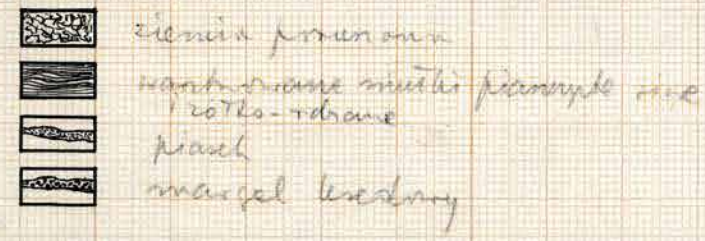 ziemia poruszona
warstwowane mułki piaszczyste sine
i żółto-rdzawe
piasek
margel